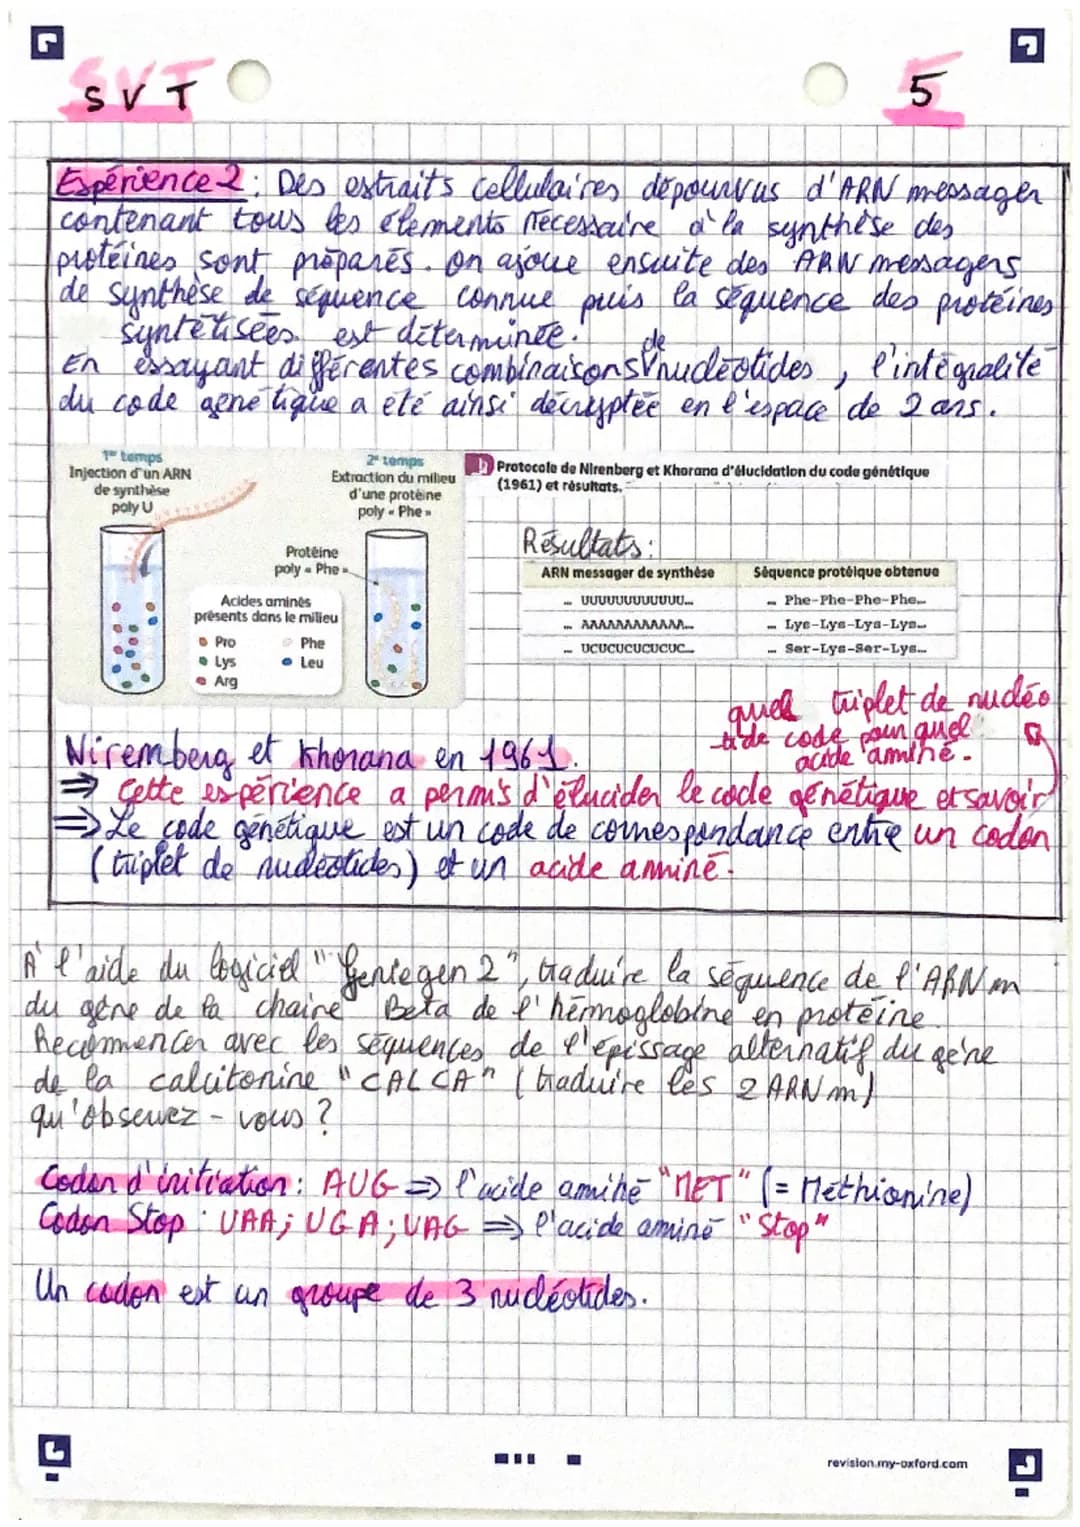 SVT
5
Expérience 2 : Des extraits cellulaires dépourvus d'ARN messager
contenant tous les éléments nécessaire à la synthèse des
protéines sont préparés. On ajoue ensuite des ARN messagers
de synthèse de séquence connue puis la séquence des protéines
syntétisées est déterminée.
En essayant différentes combinaisons de nucléotides, l'intégralité
du code génétique a été ainsi décryptée en l'espace de 2 ans.
1er temps
Injection d'un ARN
de synthèse
poly U
2e temps
Extraction du milieu
d'une protéine
poly « Phe »
Protéine
poly « Phe »
Acides aminés
présents dans le milieu
Pro
Phe
Lys
Leu
Arg
b Protocole de Nirenberg et Khorana d'élucidation du code génétique
(1961) et résultats.
Résultats :
ARN messager de synthèse Séquence protéique obtenue
... UUUUUUUUUUUU... ... Phe-Phe-Phe-Phe...
... AAAAAAAAAAAA... ... Lys-Lys-Lys-Lys...
... UCUCUCUCUCUC... ... Ser-Lys-Ser-Lys...
quel triplet de nucléo
tide code pour quel
acide aminé.
Niremberg et Khorana en 1961.
⇒ Cette expérience a permis d'élucider le code génétique et savoir
⇒ Le code génétique est un code de correspondance entre un codon
(triplet de nucléotides) et un acide aminé.
À l'aide du logiciel "Geniegen 2", traduire la séquence de l'ARNm
du gène de la chaine Beta de l'hémoglobine en protéine.
Recommencer avec les séquences de l'épissage alternatif du gène
de la calcitonine "CALCA" (traduire les 2 ARNm)
qu'observez-vous ?
Codon d'initiation : AUG ⇒ l'acide aminé "MET" (= Méthionine)
Codon Stop : UAA ; UGA ; UAG ⇒ l'acide aminé "Stop"
Un codon est un groupe de 3 nucléotides.
revision.my-oxford.com